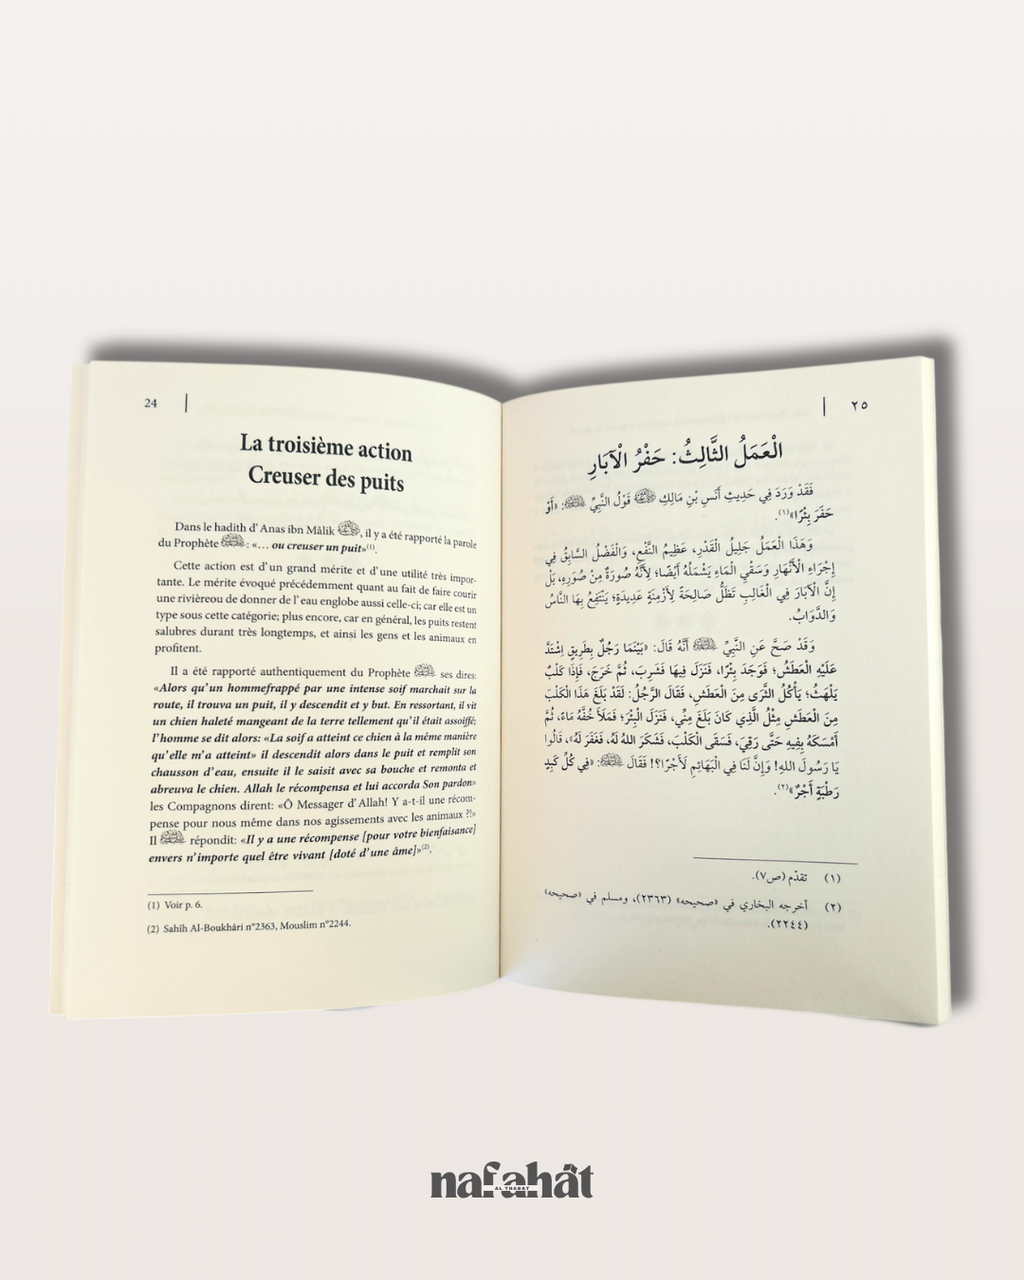 24
La troisième action
Creuser des puits
Dans le hadith d'Anas ibn Mâlik ﷺ, il y a été rapporté la parole
du Prophète ﷺ: «… ou creuser un puit»(1).
Cette action est d'un grand mérite et d'une utilité très impor-
tante. Le mérite évoqué précédemment quant au fait de faire courir
une rivièreou de donner de l'eau englobe aussi celle-ci; car elle est un
type sous cette catégorie; plus encore, car en général, les puits restent
salubres durant très longtemps, et ainsi les gens et les animaux en
profitent.
Il a été rapporté authentiquement du Prophète ﷺ ses dires:
«Alors qu'un hommefrappé par une intense soif marchait sur la
route, il trouva un puit, il y descendit et y but. En ressortant, il vit
un chien haleté mangeant de la terre tellement qu'il était assoiffé;
l'homme se dit alors: «La soif a atteint ce chien à la même manière
qu'elle m'a atteint» il descendit alors dans le puit et remplit son
chausson d'eau, ensuite il le saisit avec sa bouche et remonta et
abreuva le chien. Allah le récompensa et lui accorda Son pardon»
les Compagnons dirent: «Ô Messager d'Allah! Y a-t-il une récom-
pense pour nous même dans nos agissements avec les animaux ?!»
Il ﷺ répondit: «Il y a une récompense [pour votre bienfaisance]
envers n'importe quel être vivant [doté d'une âme]»(2).
(1) Voir p. 6.
(2) Sahîh Al-Boukhâri n°2363, Mouslim n°2244.
٢٥
الْعَمَلُ الثَّالِثُ: حَفْرُ الْآبَارِ
فَقَدْ وَرَدَ فِي حَدِيثِ أَنَسِ بْنِ مَالِكٍ ﷺ قَوْلُ النَّبِيِّ ﷺ: «أَوْ
حَفَرَ بِئْرًا»(١).
وَهَذَا الْعَمَلُ جَلِيلُ الْقَدْرِ، عَظِيمُ النَّفْعِ، وَالْفَضْلُ السَّابِقُ فِي
إِجْرَاءِ الْأَنْهَارِ وَسَقْيِ الْمَاءِ يَشْمَلُهُ أَيْضًا؛ لِأَنَّهُ صُورَةٌ مِنْ صُوَرِهِ، بَلْ
إِنَّ الْآبَارَ فِي الْغَالِبِ تَظَلُّ صَالِحَةً لِأَزْمِنَةٍ عَدِيدَةٍ؛ يَنْتَفِعُ بِهَا النَّاسُ
وَالدَّوَابُّ.
وَقَدْ صَحَّ عَنِ النَّبِيِّ ﷺ أَنَّهُ قَالَ: «بَيْنَمَا رَجُلٌ بِطَرِيقٍ اِشْتَدَّ
عَلَيْهِ الْعَطَشُ؛ فَوَجَدَ بِئْرًا، فَنَزَلَ فِيهَا فَشَرِبَ، ثُمَّ خَرَجَ، فَإِذَا كَلْبٌ
يَلْهَثُ؛ يَأْكُلُ الثَّرَى مِنَ الْعَطَشِ، فَقَالَ الرَّجُلُ: لَقَدْ بَلَغَ هَذَا الْكَلْبَ
مِنَ الْعَطَشِ مِثْلُ الَّذِي كَانَ بَلَغَ مِنِّي، فَنَزَلَ الْبِئْرَ؛ فَمَلَأَ خُفَّهُ مَاءً، ثُمَّ
أَمْسَكَهُ بِفِيهِ حَتَّى رَقِيَ، فَسَقَى الْكَلْبَ، فَشَكَرَ اللهُ لَهُ، فَغَفَرَ لَهُ»، قَالُوا
يَا رَسُولَ اللهِ! وَإِنَّ لَنَا فِي الْبَهَائِمِ لَأَجْرًا؟! فَقَالَ ﷺ: «فِي كُلِّ كَبِدٍ
رَطْبَةٍ أَجْرٌ»(٢).
(١) تقدّم (ص٧).
(٢) أخرجه البخاري في «صحيحه» (٢٣٦٣)، ومسلم في «صحيحه»
(٢٢٤٤).
nafahât
AL THABAT